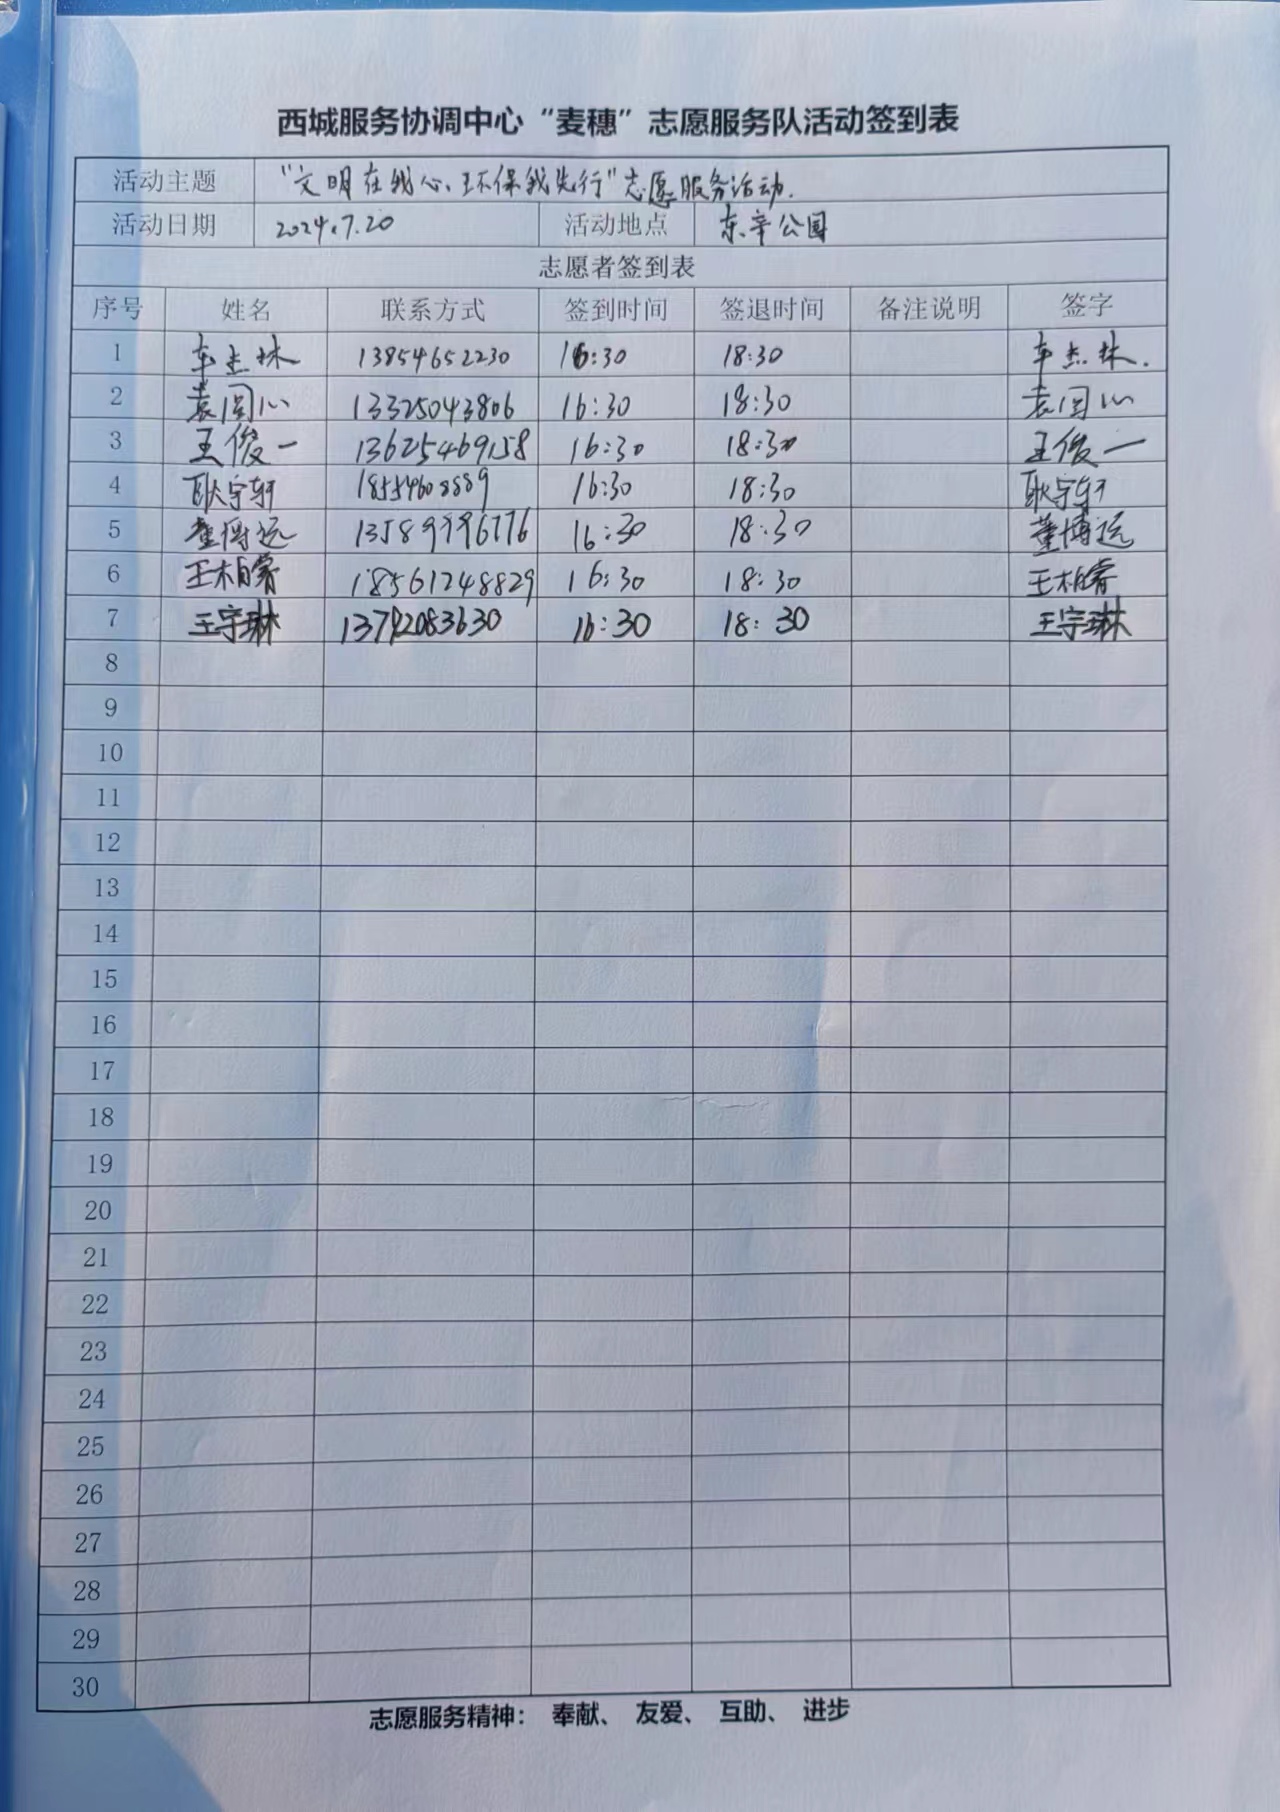 西城服务协调中心“麦穗”志愿服务队活动签到表
活动主题 “文明在我心、环保我先行”志愿服务活动.
活动日期 2024.7.20 活动地点 东辛公园
志愿者签到表
序号 姓名 联系方式 签到时间 签退时间 备注说明 签字
1 车杰林 13854652230 16:30 18:30 车杰林.
2 袁圆心 13325043806 16:30 18:30 袁圆心
3 王俊一 13625469158 16:30 18:30 王俊一
4 耿宇轩 16:30 18:30 耿宇轩
5 董博远 13589996776 16:30 18:30 董博远
6 王柏睿 18561248829 16:30 18:30 王柏睿
7 王宇琳 13792083630 16:30 18:30 王宇琳
8
9
10
11
12
13
14
15
16
17
18
19
20
21
22
23
24
25
26
27
28
29
30
志愿服务精神： 奉献、 友爱、 互助、 进步